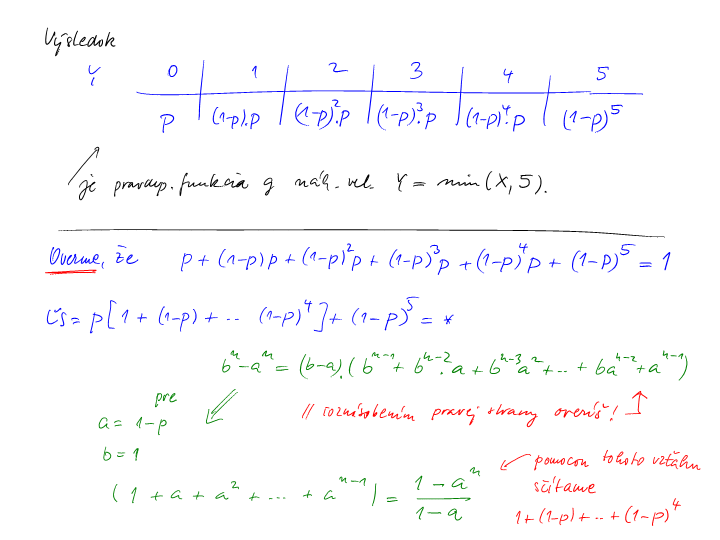 Výsledok
Y 0 1 2 3 4 5
p (1-p).p (1-p)².p (1-p)³.p (1-p)⁴.p (1-p)⁵
je pravdep. funkcia g náh. vel. Y = min(X, 5).
Overme, že p + (1-p)p + (1-p)²p + (1-p)³p + (1-p)⁴p + (1-p)⁵ = 1
ĽS = p[1 + (1-p) + .. (1-p)⁴] + (1-p)⁵ = *
bⁿ - aⁿ = (b-a).(bⁿ⁻¹ + bⁿ⁻².a + bⁿ⁻³a² + .. + baⁿ⁻² + aⁿ⁻¹)
pre
a = 1-p
// roznásobením pravej strany overíš!
b = 1
(1 + a + a² + ... + aⁿ⁻¹) = (1 - aⁿ)/(1 - a)
pomocou tohoto vzťahu
sčítame
1 + (1-p) + .. + (1-p)⁴